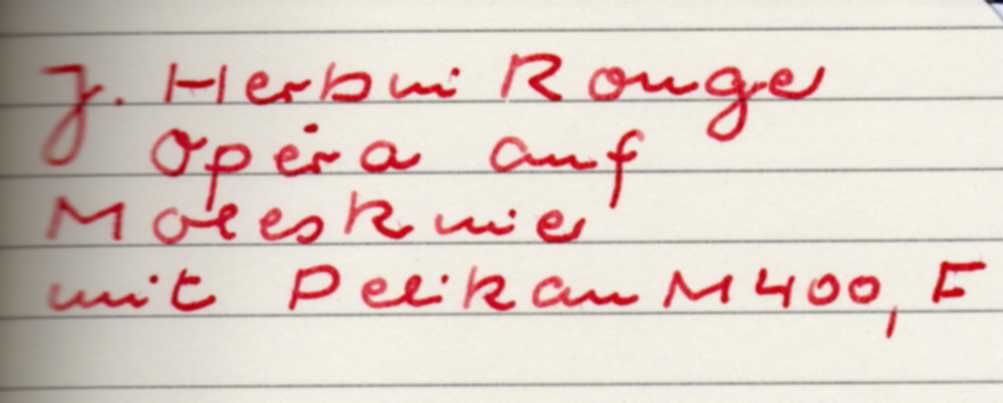 J. Herbin Rouge
Opéra auf
Moleskine
mit Pelikan M400, F